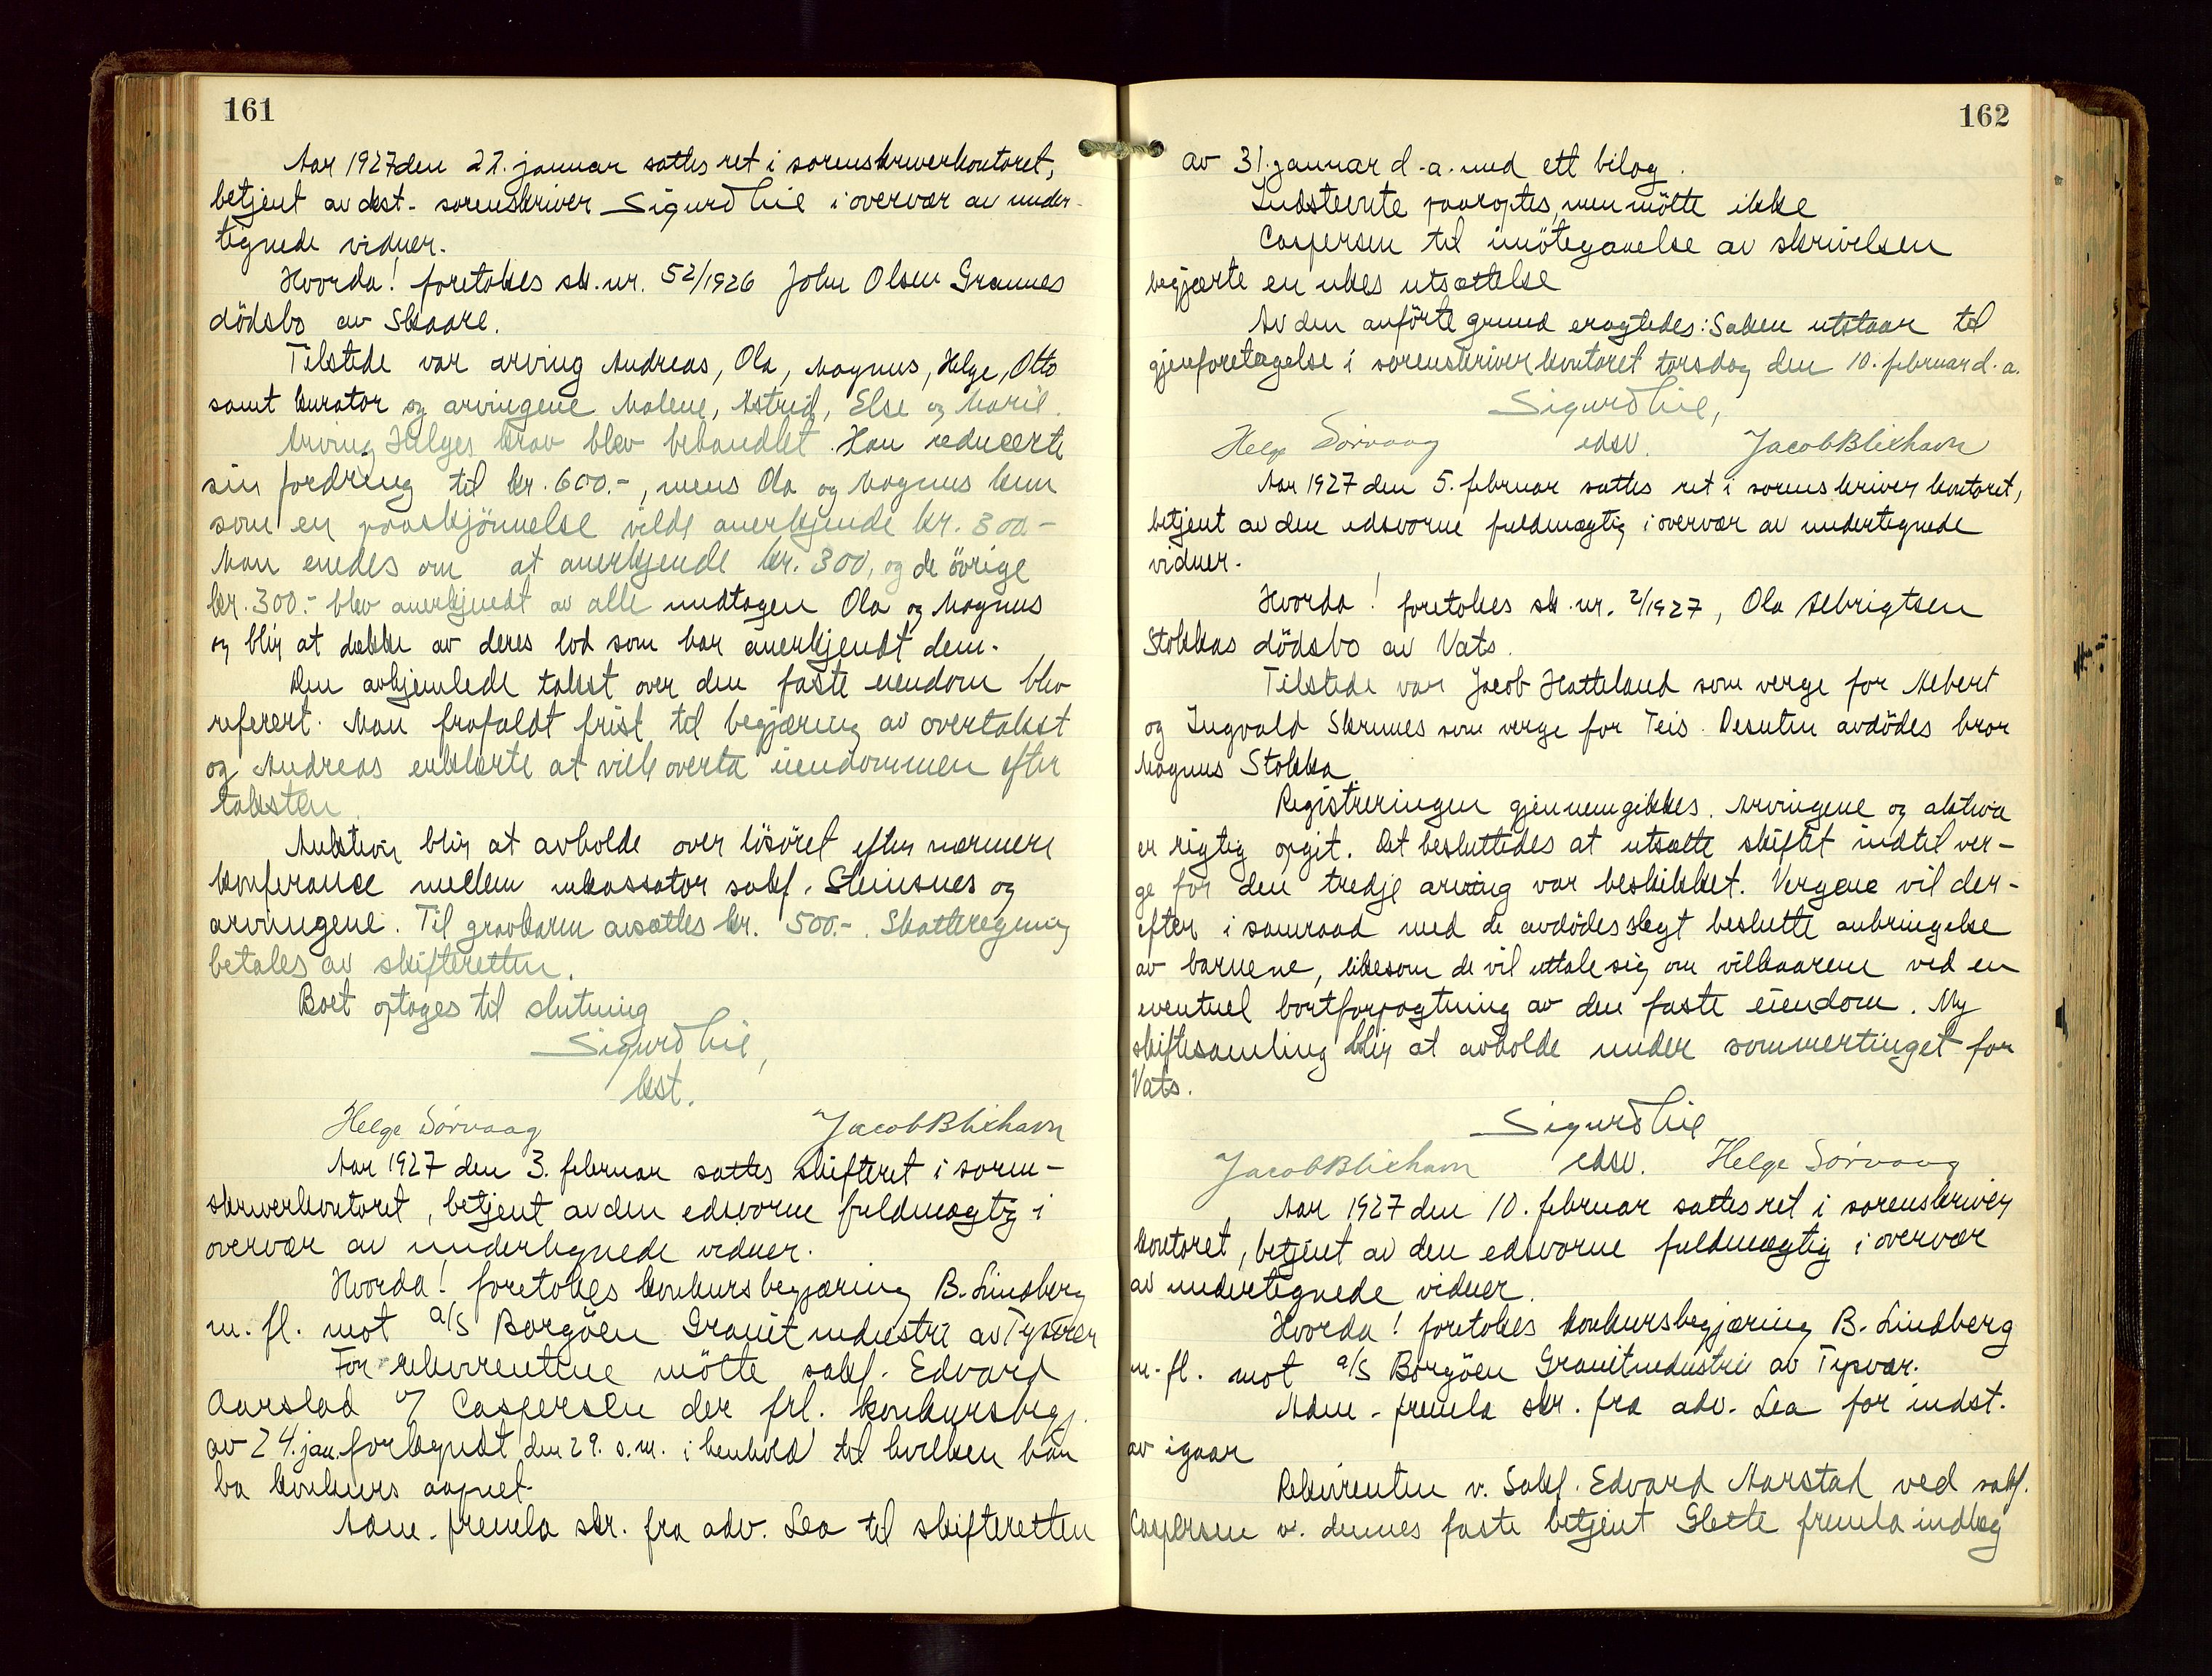 161
Aar 1927 den 27. januar sattes ret i sorenskriverkontoret,
betjent av kst. sorenskriver Sigurd Lie i overvær av under-
tegnede vidner.
Hvorda! foretokes sk. nr. 52/1926 John Olsen Grannes
dödsbo av Skaare.
Tilstede var arving Andreas, Ola, Magnus, Helge, Otto
samt kurator og arvingene Malene, Astrid, Else og Marie.
Arving Helges krav blev behandlet. Han reducerte
sin fordring til kr. 600.-, mens Ola og Magnus kun
som en paaskjönnelse vilde anerkjende kr. 300.-
Man enedes om at anerkjende kr. 300, og de övrige
kr. 300.- blev anerkjendt av alle undtagen Ola og Magnus
og blir at dække av deres lod som har anerkjendt dem.
Den avhjemlede takst over den faste eiendom blev
referert. Man frafaldt frist til begjæring av overtakst
og Andreas erklærte at ville overta eiendommen efter
taksten.
Auktion blir at avholde over lösöret efter nærmere
konferance mellem inkassator sakf. Steinsnes og
arvingene. Til gravkarm avsættes kr. 500.-. Skatteregning
betales av skifteretten.
Boet optages til slutning
Sigurd Lie,
kst.
Helge Sørvaag Jacob Blixhavn
Aar 1927 den 3. februar sattes skifteret i soren-
skriverkontoret, betjent av den edsvorne fuldmægtig i
overvær av undertegnede vidner.
Hvorda! foretokes konkursbegjæring B. Lindberg
m. fl. mot a/s Borgöen Granitindustri av Tysvær
For rekvirentene mötte sakf. Edvard
Aarstad v/ Caspersen der frl. konkursbegj.
av 24. jan. forkyndt den 29. s.m. i henhold til hvilken han
ba konkurs aapnet.
Adm. fremla skr. fra adv. Lea til skifteretten
162
av 31. januar d.a. med ett bilag.
Indstevnte paaroptes, men mötte ikke
Caspersen til imötegaaelse av skrivelsen
begjærte en ukes utsættelse
Av den anförte grund eragtedes: Saken utstaar til
gjenforetagelse i sorenskriverkontoret torsdag den 10. februar d.a.
Sigurd Lie,
Helge Sørvaag edsv. Jacob Blixhavn
Aar 1927 den 5. februar sattes ret i sorenskriverkontoret,
betjent av den edsvorne fuldmægtig i overvær av undertegnede
vidner.
Hvorda! foretokes sk. nr. 2/1927, Ola Aebrigtsen
Stokkas dödsbo av Vats.
Tilstede var Jacob Hatteland som verge for Mebert
og Ingvald Skrunes som verge for Teis. Desuten avdödes bror
Magnus Stokka.
Registreringen gjennemgikkes. Arvingene og aktiva
er rigtig opgit. Det besluttedes at utsætte skiftet indtil ver-
ge for den tredje arving var beskikket. Vergene vil der-
efter i samraad med de avdödes slegt beslutte anbringelse
av barnene, likesom de vil uttale sig om vilkaarene ved en
eventuel bortforpagtning av den faste eiendom. Ny
skiftesamling blir at avholde under sommertinget for
Vats.
Sigurd Lie
Jacob Blixhavn edsv. Helge Sørvaag
Aar 1927 den 10. februar sattes ret i sorenskriver
kontoret, betjent av den edsvorne fuldmægtig i overvær
av undertegnede vidner.
Hvorda! foretokes konkursbegjæring B. Lindberg
m. fl. mot a/s Borgöen Granitindustri av Tysvær.
Adm. fremla skr. fra adv. Lea for indst.
av igaar
Rekvirenten v. Sakf. Edvard Aarstad ved sakf.
Caspersen v. dennes faste betjent Slette fremla indlæg